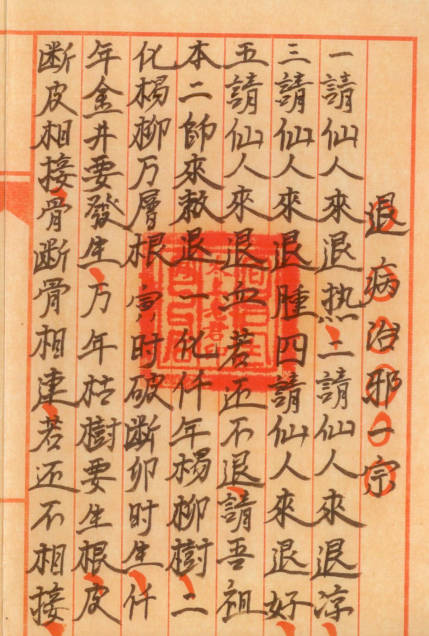 退病治邪一宗
一請仙人來退热二請仙人來退凉
三請仙人來退腫四請仙人來退好
五請仙人來退血若还不退請吾祖
本二師來敕退一化仟年楊柳樹二
化楊柳万層根寅时破断卯时生仟
年金井要發生万年枯樹要生根皮
断皮相接骨断骨相連若还不相接